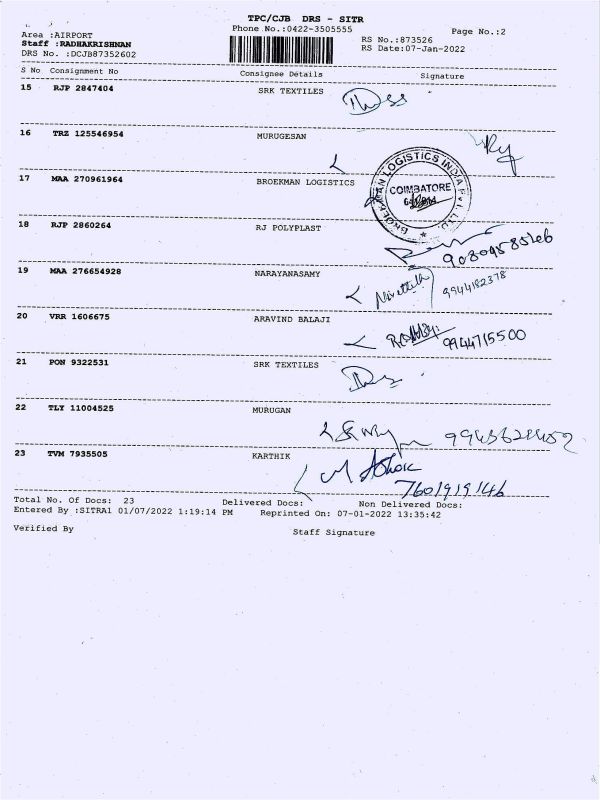 TPC/CJB DRS - SITR
Phone No.:0422-3505555
Page No.:2
Area :AIRPORT
RS No.:873526
Staff :RADHAKRISHNAN
RS Date:07-Jan-2022
DRS No. :DCJB87352602
S No Consignment No Consignee Details Signature
15 RJP 2847404 SRK TEXTILES
16 TRZ 125546954 MURUGESAN
17 MAA 270961964 BROEKMAN LOGISTICS
BROEKMAN LOGISTICS INDIA PVT. LTD.
COIMBATORE
18 RJP 2860264 RJ POLYPLAST
19 MAA 276654928 NARAYANASAMY
9944182378
20 VRR 1606675 ARAVIND BALAJI
9944715500
21 PON 9322531 SRK TEXTILES
22 TLY 11004525 MURUGAN
23 TVM 7935505 KARTHIK
M Ashok
7601919146
Total No. Of Docs: 23 Delivered Docs: Non Delivered Docs:
Entered By :SITRA1 01/07/2022 1:19:14 PM Reprinted On: 07-01-2022 13:35:42
Verified By Staff Signature